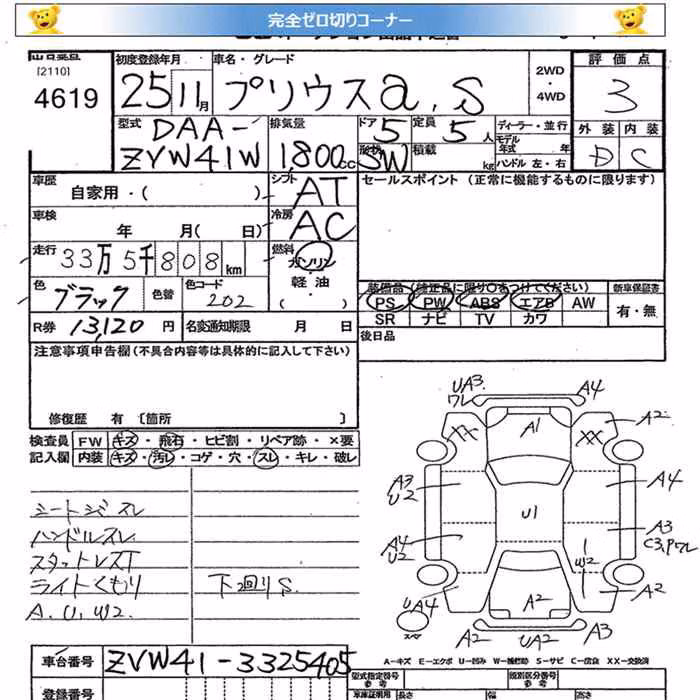 完全ゼロ切りコーナー
[2110]
4619
初度登録年月
25 11月
車名・グレード
プリウスα, S
2WD
・
4WD
評価点
3
型式
DAA-
ZVW41W
排気量
1,800cc
ドア
5
定員
5人
ディーラー・並行
モデル
年式 年
外装 内装
D C
形状
SW
積載
kg
ハンドル 左・右
車歴
自家用・( )
シフト
AT
セールスポイント (正常に機能するものに限ります)
車検
年 月( 日)
冷房
AC
走行
33万5千808km
燃料
ガソリン
・
軽油
・
( )
色
ブラック
色替
色コード
202
装備品(純正品に限り○をつけてください)
PS PW ABS エアB AW
SR ナビ TV カワ
新車保証書
有・無
R券 13,120 円
名変通知期限 月 日
後日品
注意事項申告欄(不具合内容等は具体的に記入して下さい)
修復歴 有 〔箇所 〕
検査員 FW キズ・飛石・ヒビ割・リペア跡・×要
記入欄 内装 キズ・汚レ・コゲ・穴・スレ・キレ・破レ
ハンドルスレ
スタットレスT
ライトくもり
下回りS
A.U,W2
UA3
ワレ
A4
A1
XX
XX
A2
A3
U2
A4
U1
A4
U2
A3
C3,Pワレ
W2
UA4
A2
A2
A2
UA2
A3
A-キズ E-エクボ U-凹み W-補修跡 S-サビ C-腐食 XX-交換済
車台番号
ZVW41-3325405
登録番号
型式指定番号
参考
類別区分番号
参考
車庫証明用
長さ
幅
高さ